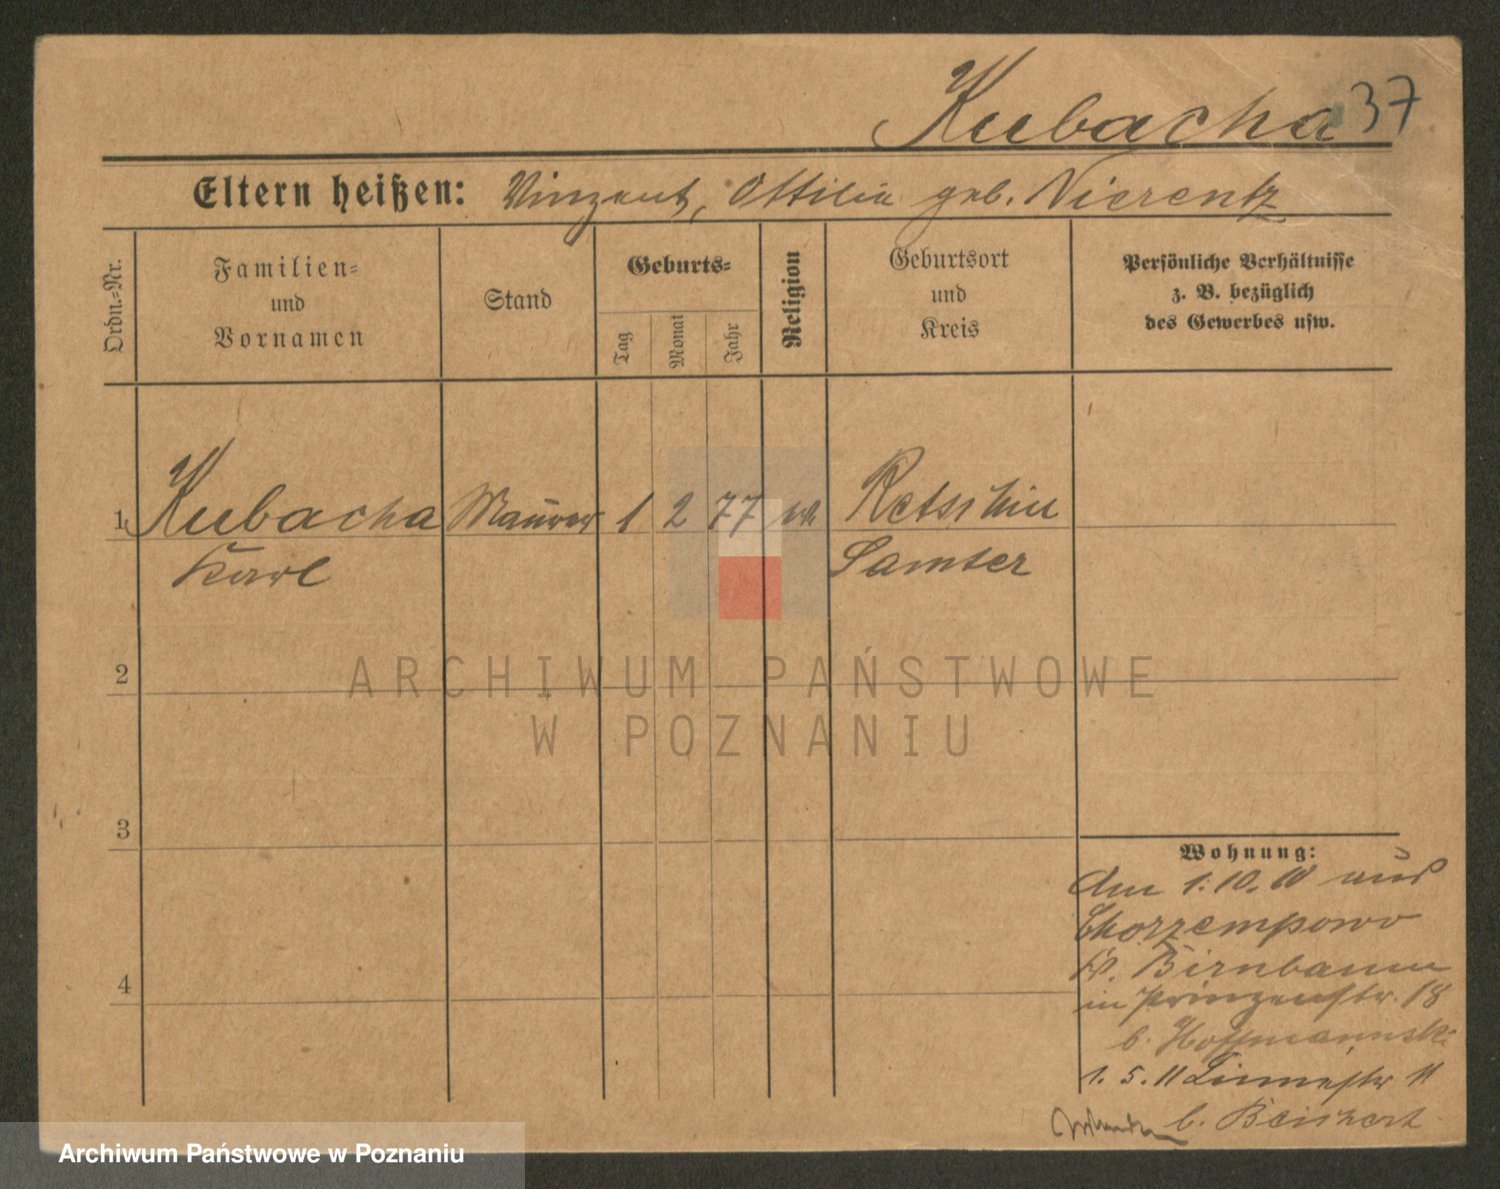 Kubacha 37
Eltern heißen: Vinzent, Ottilie geb. Nierentz
Ordn.-Nr.
Familien-
und
Vornamen
Stand
Geburts-
Tag
Monat
Jahr
Religion
Geburtsort
und
Kreis
Persönliche Verhältnisse
z. B. bezüglich
des Gewerbes usw.
1 Kubacha Maurer 1 2 77 Retschin
Karl Samter
2
3
4
Wohnung:
Am 1.10.10 aus
Chorzempowo
Kr. Birnbaum
in Prinzenstr. 18
b. Hoffmannski
1. 5. 11 11
b. Beichert
ARCHIWUM PAŃSTWOWE
W POZNANIU
Archiwum Państwowe w Poznaniu